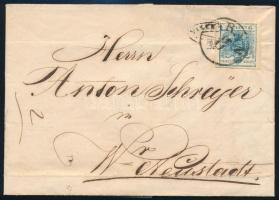 Herrn
Anton Schreyer
in
Wr Neustadt.